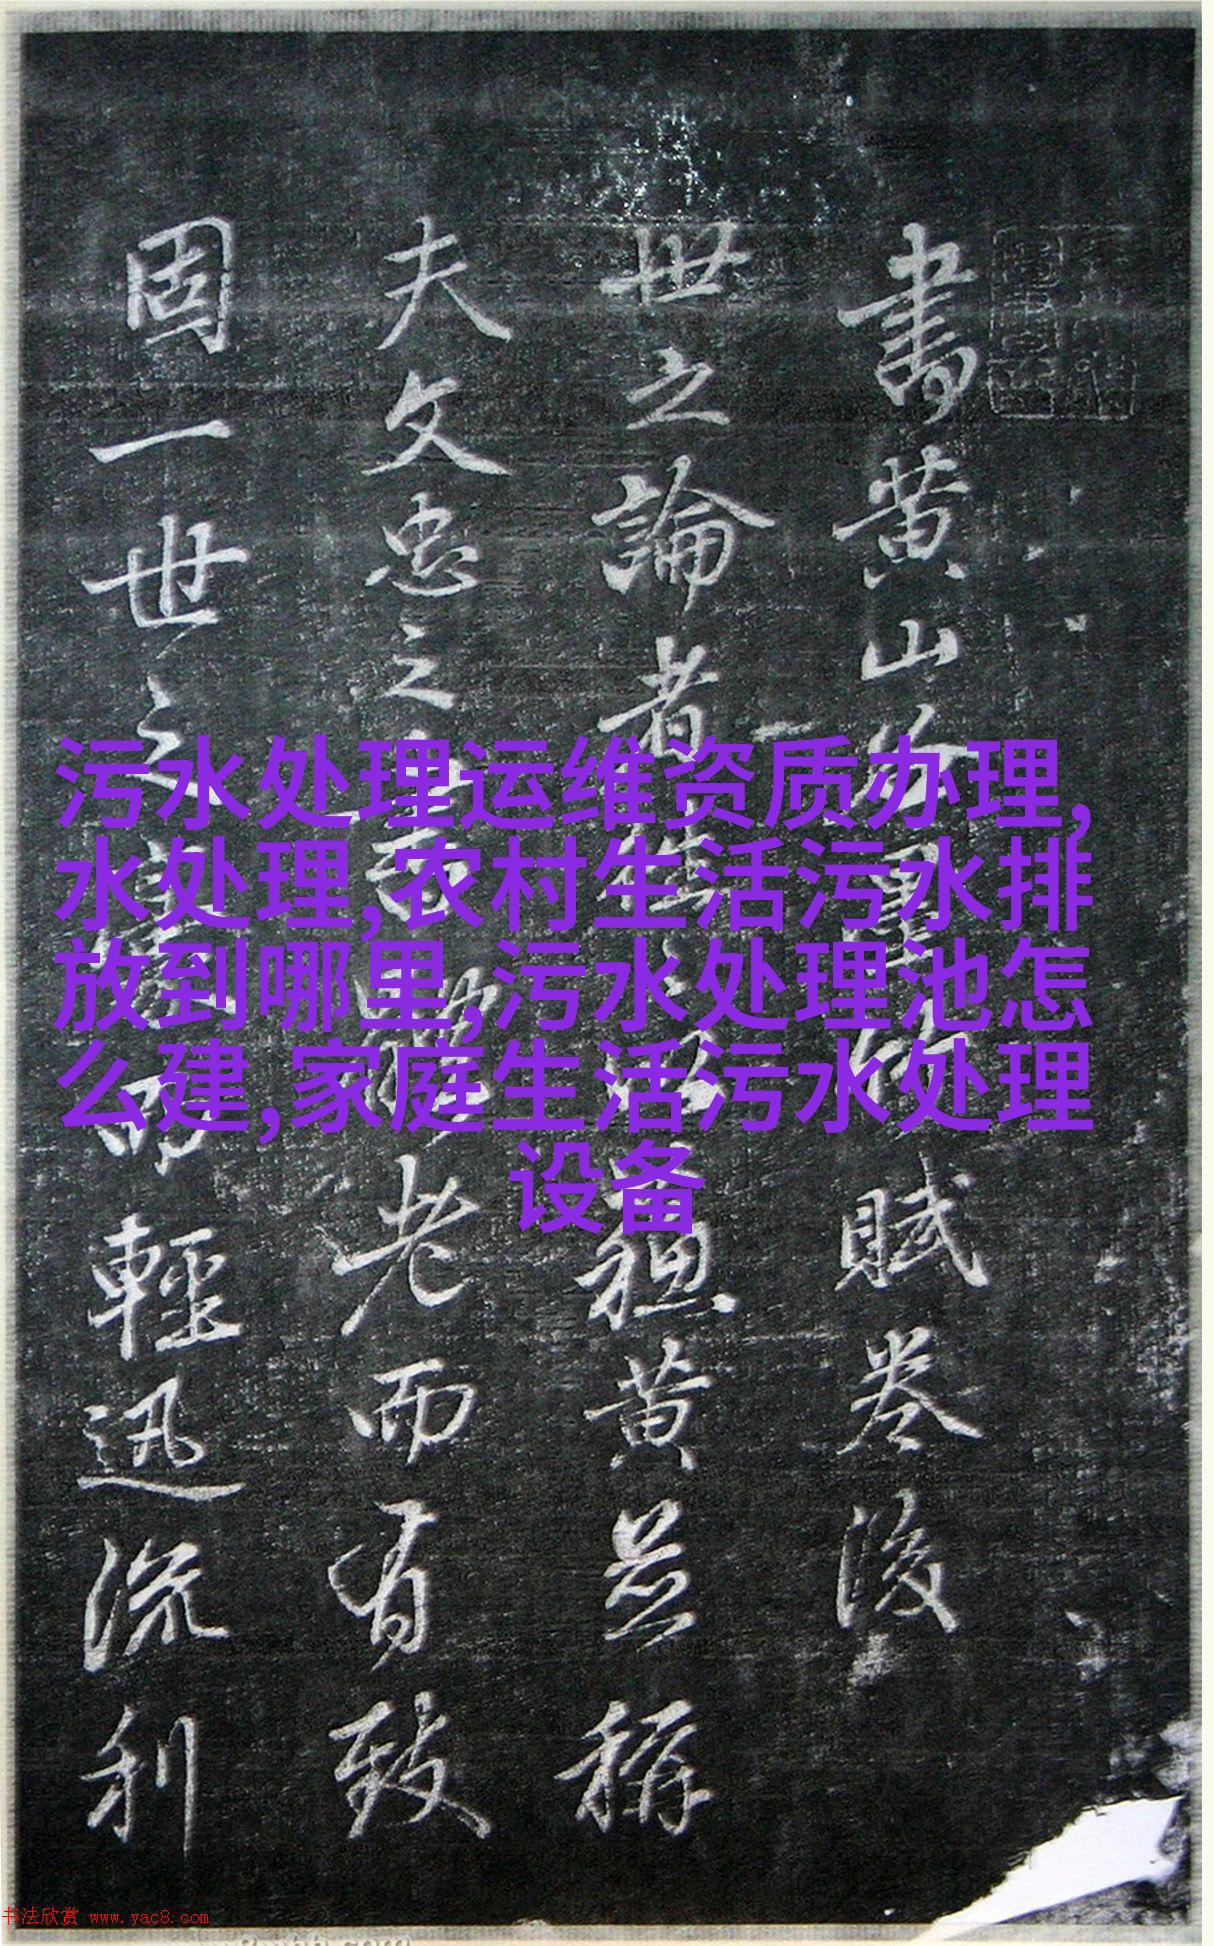 書黄山谷墨竹賦卷後
世之論者 黄並稱
夫文忠之 老而有致
固一世之 輕迅流利
污水处理运维资质办理,
水处理,农村生活污水排
放到哪里,污水处理池怎
么建,家庭生活污水处理
设备
书法欣赏 www.yac8.com